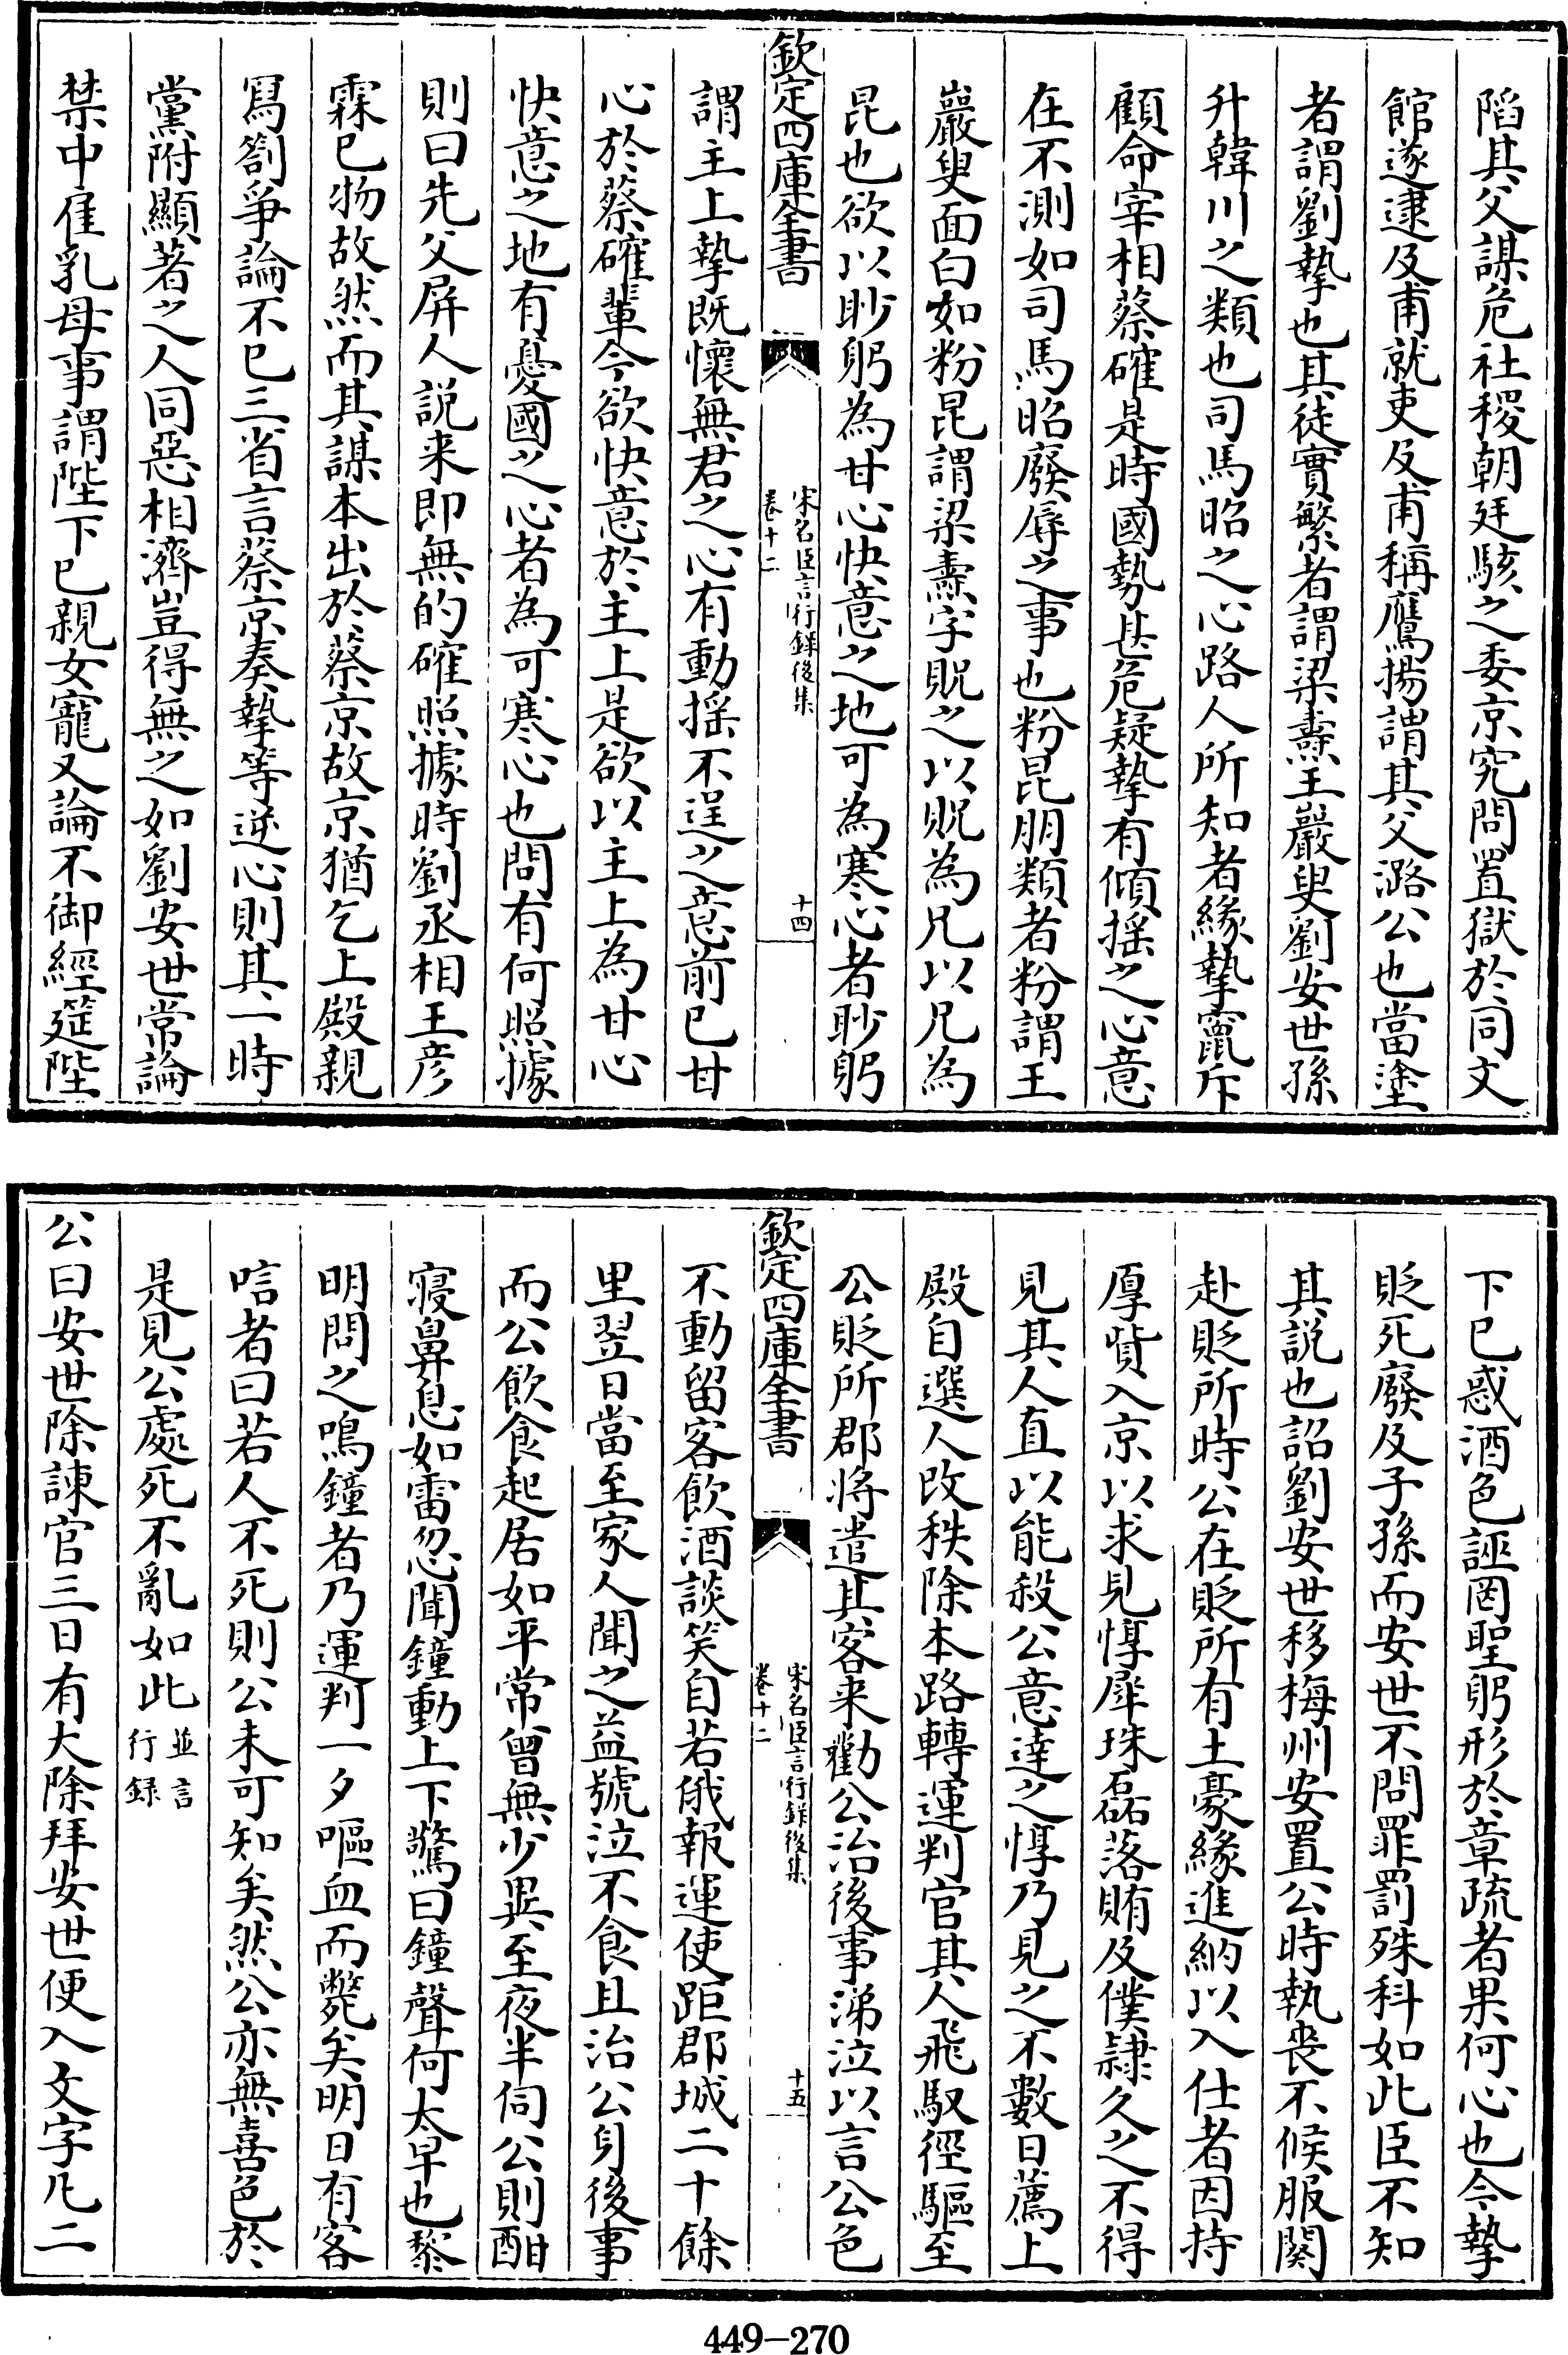 陷其父謀危社稷朝廷駭之委京究問置獄於同文
館遂逮及甫就吏及甫稱鷹揚謂其父潞公也當塗
者謂劉摯也其徒實繁者謂梁燾王巖叟劉安世孫
升韓川之類也司馬昭之心路人所知者緣摯竄斥
顧命宰相蔡確是時國勢甚危疑摯有傾揺之心意
在不測如司馬昭廢辱之事也粉昆朋類者粉謂王
巖叟面白如粉昆謂梁燾字貺之以貺為兄以兄為
昆也欲以眇躬為甘心快意之地可為寒心者眇躬
欽定四庫全書
宋名臣言行録後集
卷十二
十四
謂主上摯既懷無君之心有動揺不逞之意前已甘
心於蔡確輩今欲快意於主上是欲以主上為甘心
快意之地有憂國之心者為可寒心也問有何照據
則曰先父屏人説来即無的確照據時劉丞相王彦
霖已物故然而其謀本出於蔡京故京猶乞上殿親
寫劄爭論不已三省言蔡京奏摯等逆心則其一時
黨附顯著之人同惡相濟豈得無之如劉安世常論
禁中雇乳母事謂陛下已親女寵又論不御經筵陛
下已惑酒色誣罔聖躬形於章疏者果何心也今摯
貶死廢及子孫而安世不問罪罰殊科如此臣不知
其說也詔劉安世移梅州安置公時執喪不候服闋
赴貶所時公在貶所有土豪緣進納以入仕者因持
厚貲入京以求見惇犀珠磊落賄及僕隸久之不得
見其人直以能殺公意達之惇乃見之不數日薦上
殿自選人改秩除本路轉運判官其人飛馭徑驅至
公貶所郡将遣其客来勸公治後事涕泣以言公色
欽定四庫全書
宋名臣言行録後集
卷十二
十五
不動留客飲酒談笑自若俄報運使距郡城二十餘
里翌日當至家人聞之益號泣不食且治公身後事
而公飲食起居如平常曾無少異至夜半伺公則酣
寢鼻息如雷忽聞鐘動上下驚曰鐘聲何太早也黎
明問之鳴鐘者乃運判一夕嘔血而斃矣明日有客
唁者曰若人不死則公未可知矣然公亦無喜色於
是見公處死不亂如此並言行録
公曰安世除諫官三日有大除拜安世便入文字凡二
449-270